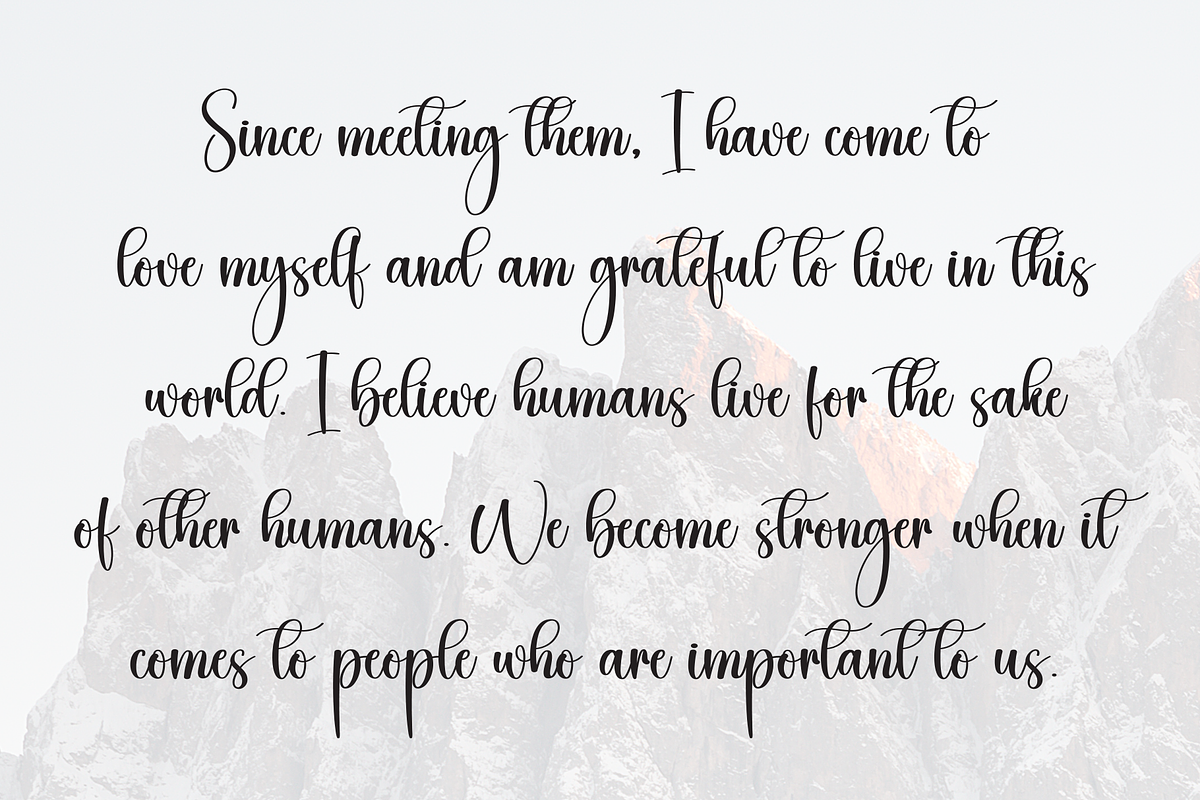 Since meeting them, I have come to
love myself and am grateful to live in this
world. I believe humans live for the sake
of other humans. We become stronger when it
comes to people who are important to us.